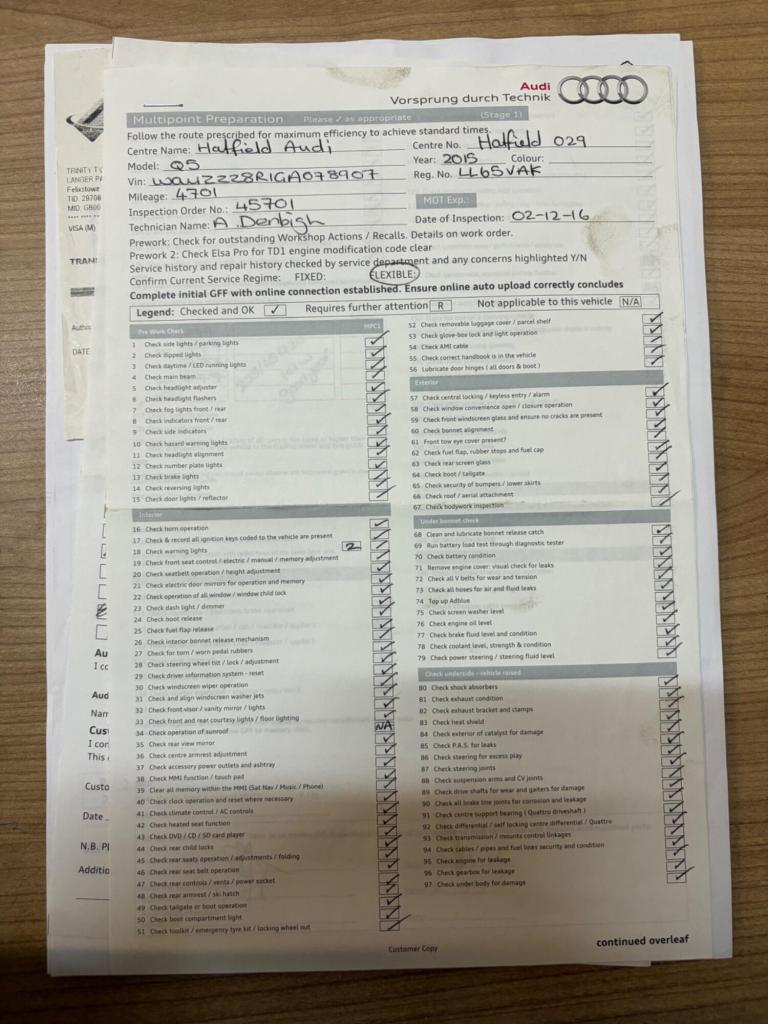 Audi
Vorsprung durch Technik
Multipoint Preparation Please ✓ as appropriate (Stage 1)
Follow the route prescribed for maximum efficiency to achieve standard times.
Centre Name: Hatfield Audi Centre No. Hatfield 029
Model: Q5 Year: 2015 Colour:
Vin: WAUZZZ8R1GA078907 Reg. No. LL65VAK
Mileage: 4701
Inspection Order No.: 45701 MOT Exp.:
Technician Name: A Denbigh Date of Inspection: 02-12-16
Prework: Check for outstanding Workshop Actions / Recalls. Details on work order.
Prework 2: Check Elsa Pro for TD1 engine modification code clear
Service history and repair history checked by service department and any concerns highlighted Y/N
Confirm Current Service Regime: FIXED: FLEXIBLE:
Complete initial GFF with online connection established. Ensure online auto upload correctly concludes
Legend: Checked and OK ✓ Requires further attention R Not applicable to this vehicle N/A
Pre Work Check MPC1
1 Check side lights / parking lights
2 Check dipped lights
3 Check daytime / LED running lights
4 Check main beam
5 Check headlight adjuster
6 Check headlight flashers
7 Check fog lights front / rear
8 Check indicators front / rear
9 Check side indicators
10 Check hazard warning lights
11 Check headlight alignment
12 Check number plate lights
13 Check brake lights
14 Check reversing lights
15 Check door lights / reflector
Interior
16 Check horn operation
17 Check & record all ignition keys coded to the vehicle are present 2
18 Check warning lights
19 Check front seat control / electric / manual / memory adjustment
20 Check seatbelt operation / height adjustment
21 Check electric door mirrors for operation and memory
22 Check operation of all window / window child lock
23 Check dash light / dimmer
24 Check boot release
25 Check fuel flap release
26 Check interior bonnet release mechanism
27 Check for torn / worn pedal rubbers
28 Check steering wheel tilt / lock / adjustment
29 Check driver information system - reset
30 Check windscreen wiper operation
31 Check and align windscreen washer jets
32 Check front visor / vanity mirror / lights
33 Check front and rear courtesy lights / floor lighting
34 Check operation of sunroof NA
35 Check rear view mirror
36 Check centre armrest adjustment
37 Check accessory power outlets and ashtray
38 Check MMI function / touch pad
39 Clear all memory within the MMI (Sat Nav / Music / Phone)
40 Check clock operation and reset where necessary
41 Check climate control / AC controls
42 Check heated seat function
43 Check DVD / CD / SD card player
44 Check rear child locks
45 Check rear seats operation / adjustments / folding
46 Check rear seat belt operation
47 Check rear controls / vents / power socket
48 Check rear armrest / ski hatch
49 Check tailgate or boot operation
50 Check boot compartment light
51 Check toolkit / emergency tyre kit / locking wheel nut
52 Check removable luggage cover / parcel shelf
53 Check glove-box lock and light operation
54 Check AMI cable
55 Check correct handbook is in the vehicle
56 Lubricate door hinges ( all doors & boot )
Exterior
57 Check central locking / keyless entry / alarm
58 Check window convenience open / closure operation
59 Check front windscreen glass and ensure no cracks are present
60 Check bonnet alignment
61 Front tow eye cover present?
62 Check fuel flap, rubber stops and fuel cap
63 Check rear screen glass
64 Check boot / tailgate
65 Check security of bumpers / lower skirts
66 Check roof / aerial attachment
67 Check bodywork inspection
Under bonnet check
68 Clean and lubricate bonnet release catch
69 Run battery load test through diagnostic tester
70 Check battery condition
71 Remove engine cover: visual check for leaks
72 Check all V belts for wear and tension
73 Check all hoses for air and fluid leaks
74 Top up Adblue
75 Check screen washer level
76 Check engine oil level
77 Check brake fluid level and condition
78 Check coolant level, strength & condition
79 Check power steering / steering fluid level
Check underside - vehicle raised
80 Check shock absorbers
81 Check exhaust condition
82 Check exhaust bracket and clamps
83 Check heat shield
84 Check exterior of catalyst for damage
85 Check P.A.S. for leaks
86 Check steering for excess play
87 Check steering joints
88 Check suspension arms and CV joints
89 Check drive shafts for wear and gaiters for damage
90 Check all brake line joints for corrosion and leakage
91 Check centre support bearing ( Quattro driveshaft )
92 Check differential / self locking centre differential / Quattro
93 Check transmission / mounts control linkages
94 Check cables / pipes and fuel lines security and condition
95 Check engine for leakage
96 Check gearbox for leakage
97 Check under body for damage
Customer Copy
continued overleaf
TRINITY T
LANGER PA
Felixstowe
TID: 29708
MID: GB00
VISA (M)
TRAN
Autho
DATE
Au
I cc
Aud
Nam
Cust
I con
This
Custo
Date
N.B. Pl
Additio